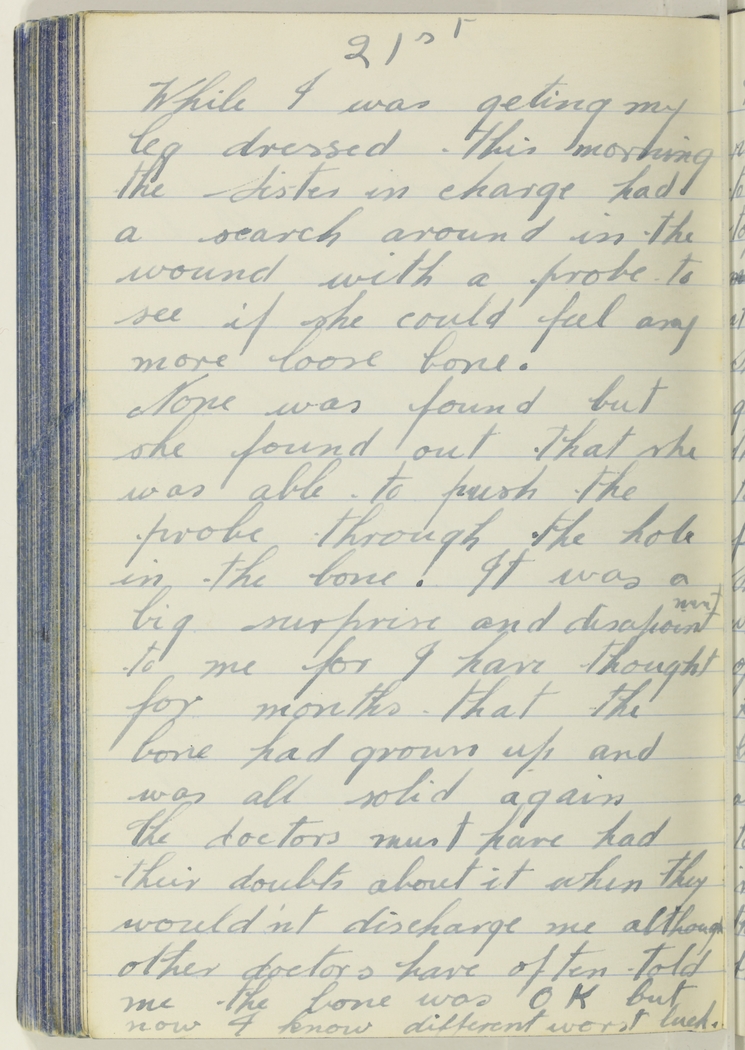 21st
While I was geting my
leg dressed this morning
the Sister in charge had
a search around in the
wound with a probe to
see if she could feel any
more loose bone.
None was found but
she found out that she
was able to push the
probe through the hole
in the bone. It was a
big surprise and disapointment
to me for I have thought
for months that the
bone had grown up and
was all solid again
the doctors must have had
their doubts about it when they
would'nt discharge me although
other doctors have often told
me the bone was OK but
now I know different worst luck.